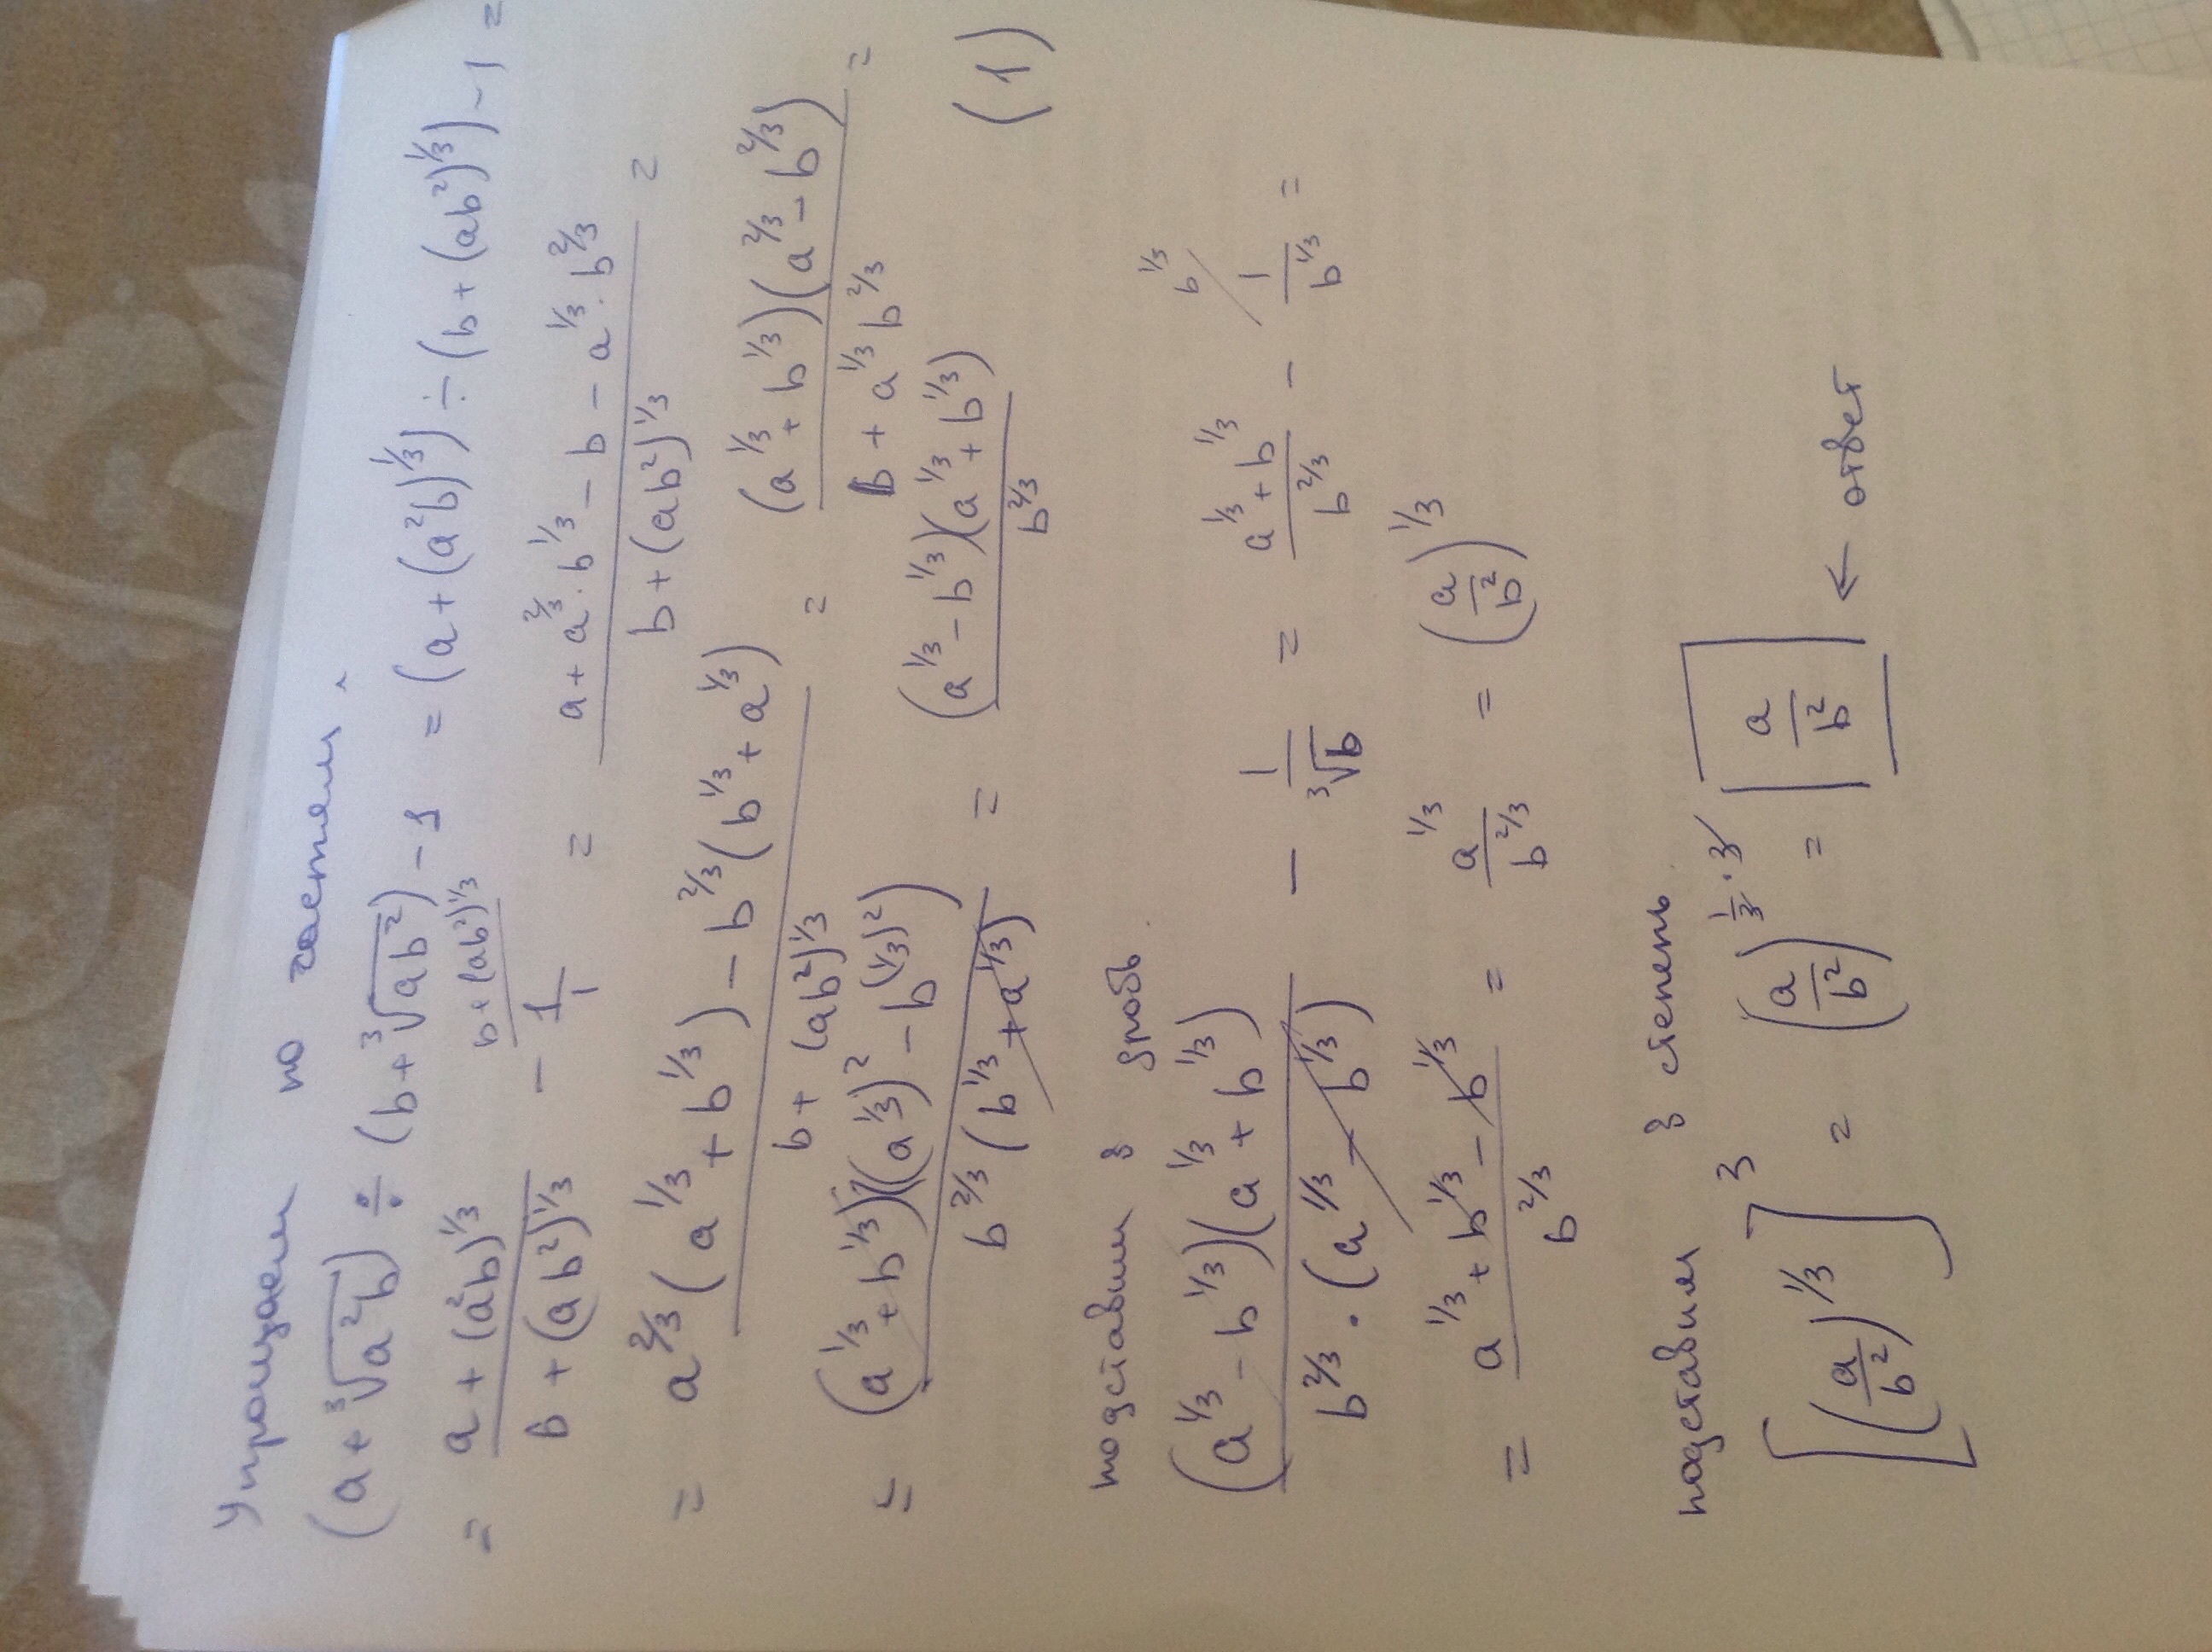 Упрощаем по частям.
(a + ∛(a²b)) ÷ (b + ∛(ab²)) − 1 = (a + (a²b)^1/3) ÷ (b + (ab²)^1/3) − 1 =
= (a + (a²b)^1/3)/(b + (ab²)^1/3) − 1/1 b + (ab²)^1/3 = (a + a^2/3 · b^1/3 − b − a^1/3 · b^2/3)/(b + (ab²)^1/3) =
= (a^2/3 (a^1/3 + b^1/3) − b^2/3 (b^1/3 + a^1/3))/(b + (ab²)^1/3) = ((a^1/3 + b^1/3)(a^2/3 − b^2/3))/(b + a^1/3 b^2/3) =
= ((a^1/3 + b^1/3)((a^1/3)² − b^(1/3)²))/(b^2/3 (b^1/3 + a^1/3)) = ((a^1/3 − b^1/3)(a^1/3 + b^1/3))/b^2/3 (1)
подставим в дробь
((a^1/3 − b^1/3)(a^1/3 + b^1/3))/(b^2/3 · (a^1/3 − b^1/3)) − 1/∛b = (a^1/3 + b^1/3)/b^2/3 − 1/b^1/3 b^1/3 =
= (a^1/3 + b^1/3 − b^1/3)/b^2/3 = a^1/3/b^2/3 = (a/b²)^1/3
подставим в степень
[(a/b²)^1/3]³ = (a/b²)^1/3 · 3 = a/b² ← ответ